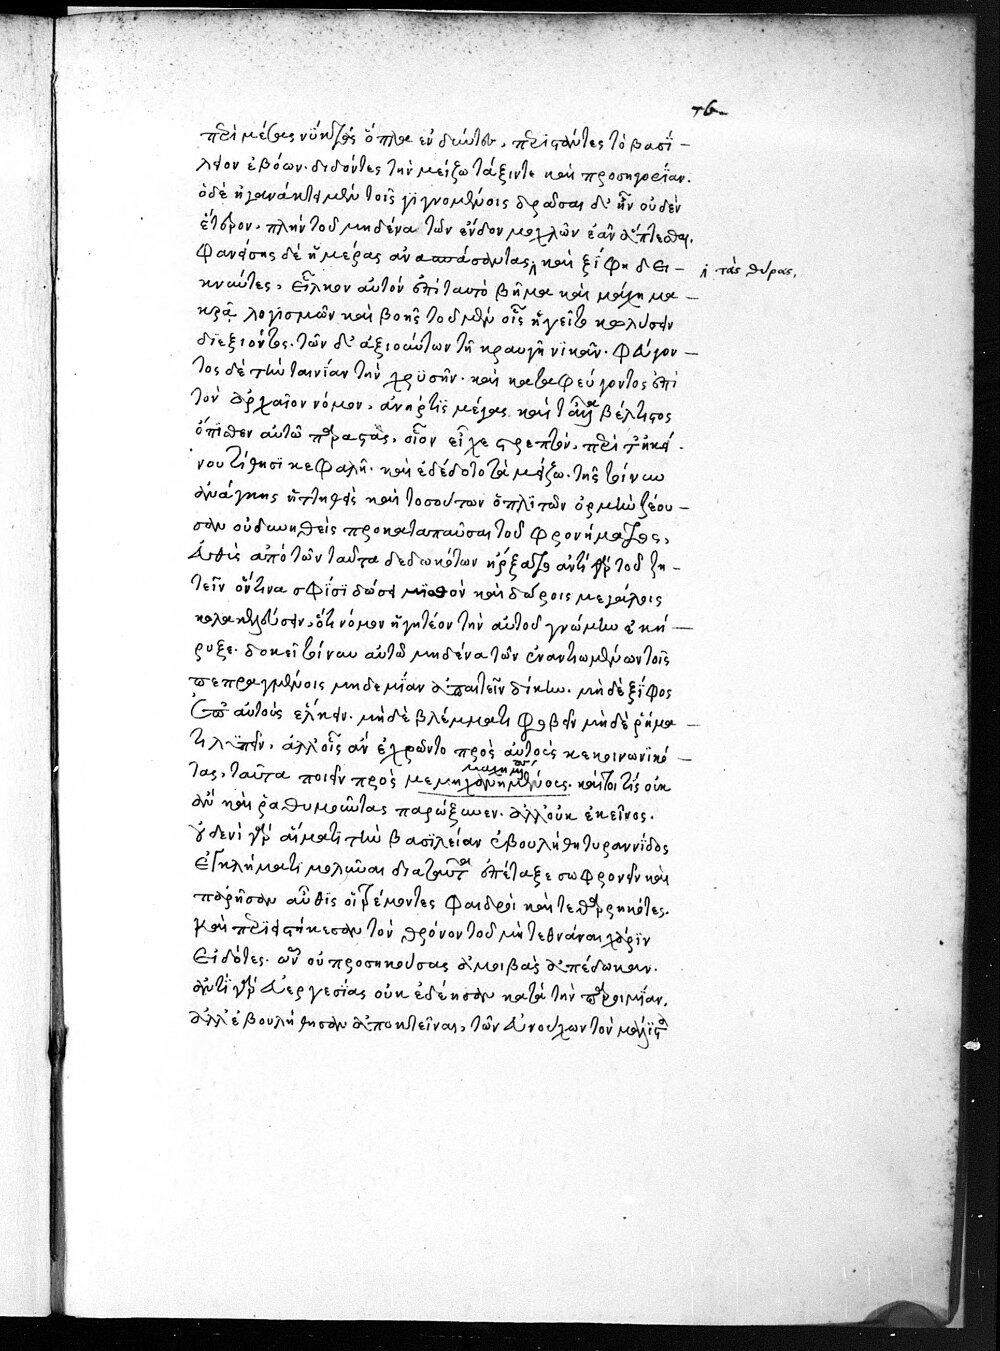 περὶ μέσας νύκτας ὅπλα ἐν δικύτοσι, περιϊπόντες τὸ βασί-
λειον ἐβόων. διδόντες τὴν μείζω τάξιν τε καὶ προσηγορίαν.
ὁ δὲ ἠγανάκτει μὲν τοῖς γιγνομένοις δρᾶσαι δ' ἦν οὐδὲν
ἕτερον. πλὴν τοῦ μηδένα τῶν ἔνδον μοχλῶν ἐᾶν ἅπτεσθαι.
Φανείσης δὲ ἡμέρας ἀνασπάσαντας καὶ ξίφη δει-
τὰς θύρας,
κνύντες, εἷλκον αὐτὸν ἐπὶ ταυτὸ βῆμα καὶ μάχη μα-
κρὰ λογισμῶν καὶ βοῆς τοῦ μὲν οἷς ἡγεῖτο κωλύσειν
διεξιόντος. τῶν δ' ἀξιούντων τῇ κραυγῇ νικᾶν. Φεύγον-
τος δὲ τὴν ταινίαν τὴν χρυσῆν. καὶ καταφεύγοντος ἐπὶ
τὸν ἀρχαῖον νόμον. ἀνήρ τις μέγας καὶ τἆλλα βέλτιστος
ὄπισθεν αὐτῷ παραστάς, οἷον εἶχε στρεπτὸν, περιτίθησι
τῇ κεφαλῇ. καὶ ἐδέδοτο τὰ μείζω. τῆς τοίνυν
ἀνάγκης ἡττηθεὶς καὶ τοσούτων ὁπλιτῶν ὁρμὴν ζέου-
σαν οὐ δυνηθεὶς προκαταπαῦσαι τοῦ φρονήματος,
εὐθὺς ἀπὸ τῶν ταῦτα δεδωκότων ἤρξατο ἀντὶ γὰρ τοῦ ζη-
τεῖν οὕτινα σφίσι δώσει μισθὸν καὶ δώροις μεγάλοις
κολακεύσειν, ὅτι νόμον ἡγητέον τὴν αὐτοῦ γνώμην ἐκή-
ρυξε. δοκεῖ τοίνυν αὐτῷ μηδένα τῶν ἐναντιωμένων τοῖς
πεπραγμένοις μηδεμίαν ἀπαιτεῖν δίκην. μηδὲ ξίφος
ἐπ' αὐτοὺς ἕλκειν. μηδὲ βλέμματι φοβεῖν μηδὲ ῥήμα-
τι λυπεῖν, ἀλλ' οἷς ἂν ἐχρῶντο πρὸς αὐτοὺς κεκοινωνηκό-
τας, ταῦτα ποιεῖν πρὸς μεμηχανημένους. καίτοι τίς οὐκ
ἂν καὶ ῥαθυμοῦντας παρώξυνεν. ἀλλ' οὐκ ἐκεῖνος.
οὐδενὶ γὰρ αἵματι τὴν βασιλείαν ἐβουλήθη τυραννίδος
ἐγκλήματι μολῦναι διὰ ταῦτα ἐπέταξε σωφρονεῖν καὶ
παρῆσαν αὖθις οἱ τρέμοντες φαιδροὶ καὶ τεθαρρηκότες.
καὶ περιεστήκεσαν τὸν θρόνον τοῦ μὴ τεθνάναι χάριν
εἰδότες. ὧν οὐ προσηκούσας ἀμοιβὰς ἀπέδωκαν.
ἀντὶ γὰρ εὐεργεσίας οὐκ ἐδέησαν κατὰ τὴν παροιμίαν.
ἀλλ' ἐβουλήθησαν ἀποκτεῖναι, τῶν εὐνούχων τὸν μάλιστα